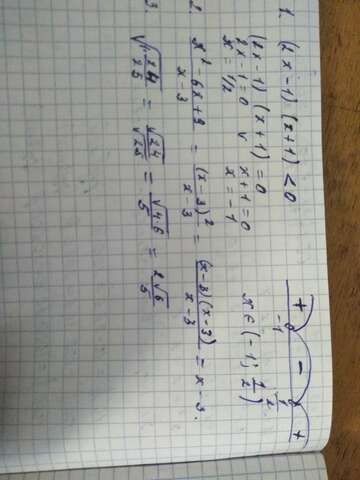 1. (2x-1)(x+1) < 0
(2x-1)(x+1) = 0
2x-1=0 v x+1=0
x = 1/2 x = -1
+ -1 - 1/2 +
x ∈ (-1; 1/2)
2. (x²-6x+9)/(x-3) = (x-3)²/(x-3) = (x-3)(x-3)/(x-3) = x-3.
3. √(24/25) = √24/√25 = √4·6/5 = 2√6/5